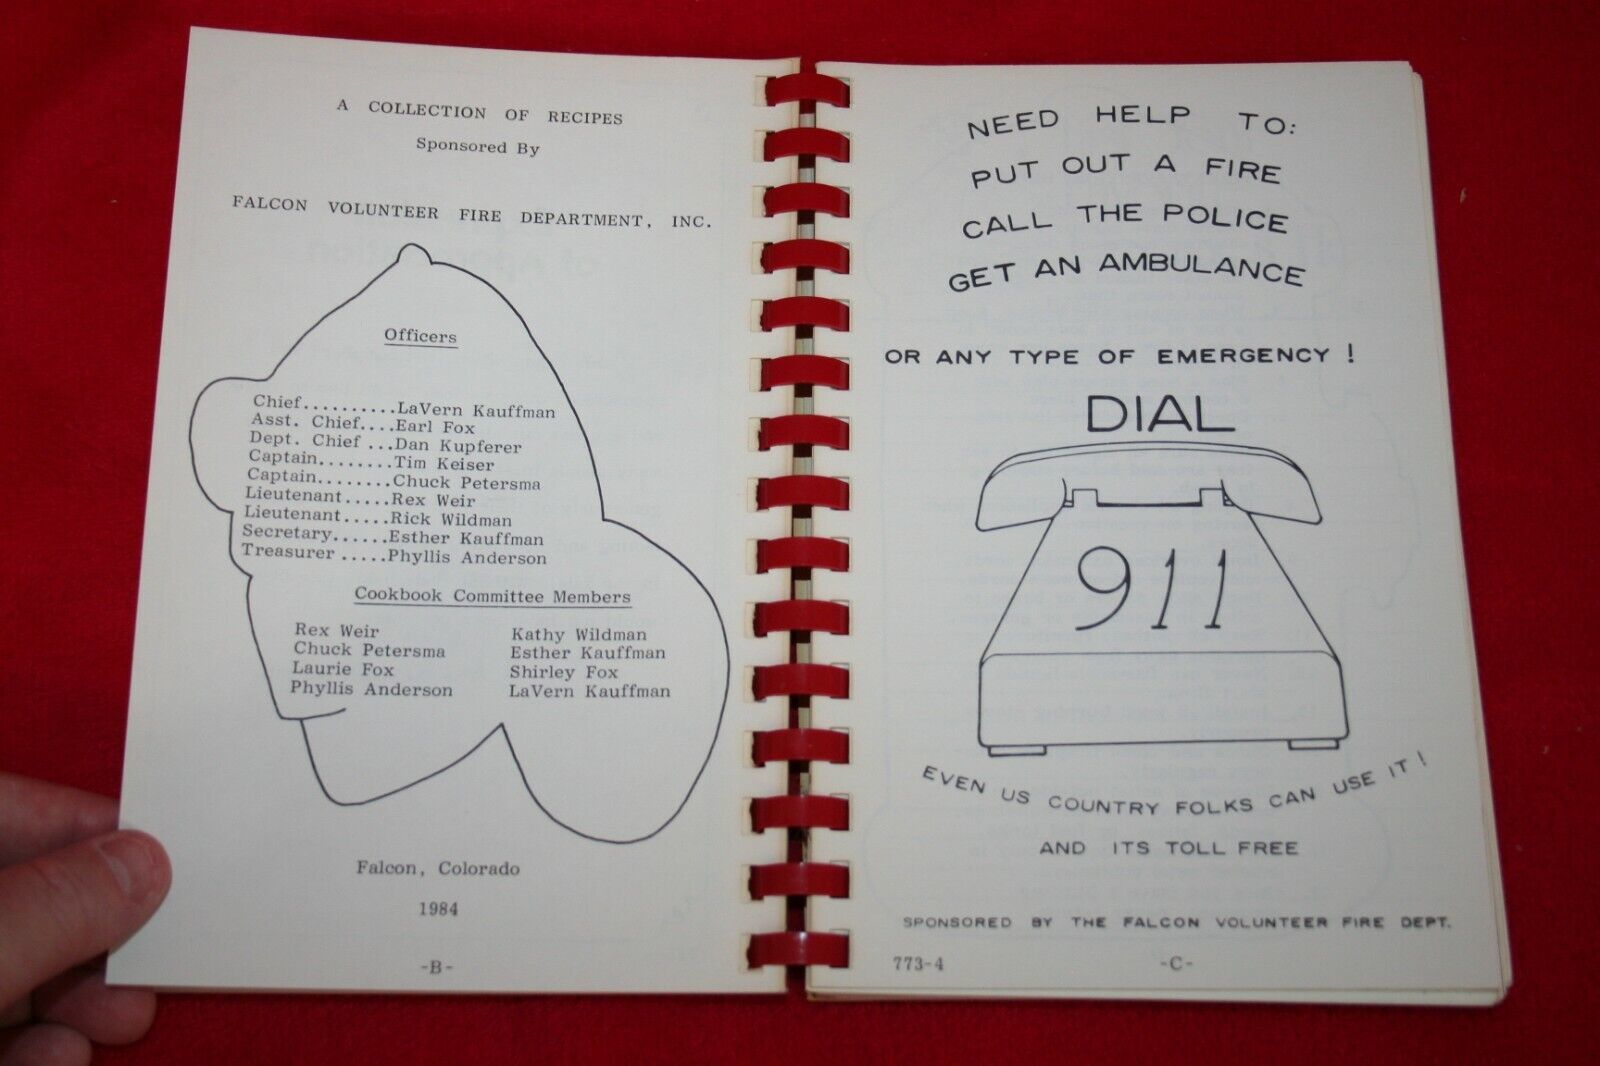 A COLLECTION OF RECIPES
Sponsored By
FALCON VOLUNTEER FIRE DEPARTMENT, INC.
Officers
Chief..........LaVern Kauffman
Asst. Chief....Earl Fox
Dept. Chief ...Dan Kupferer
Captain........Tim Keiser
Captain........Chuck Petersma
Lieutenant.....Rex Weir
Lieutenant.....Rick Wildman
Secretary......Esther Kauffman
Treasurer .....Phyllis Anderson
Cookbook Committee Members
Rex Weir Kathy Wildman
Chuck Petersma Esther Kauffman
Laurie Fox Shirley Fox
Phyllis Anderson LaVern Kauffman
Falcon, Colorado
1984
-B-
NEED HELP TO:
PUT OUT A FIRE
CALL THE POLICE
GET AN AMBULANCE
OR ANY TYPE OF EMERGENCY !
DIAL
911
EVEN US COUNTRY FOLKS CAN USE IT !
AND ITS TOLL FREE
SPONSORED BY THE FALCON VOLUNTEER FIRE DEPT.
773-4 -C-